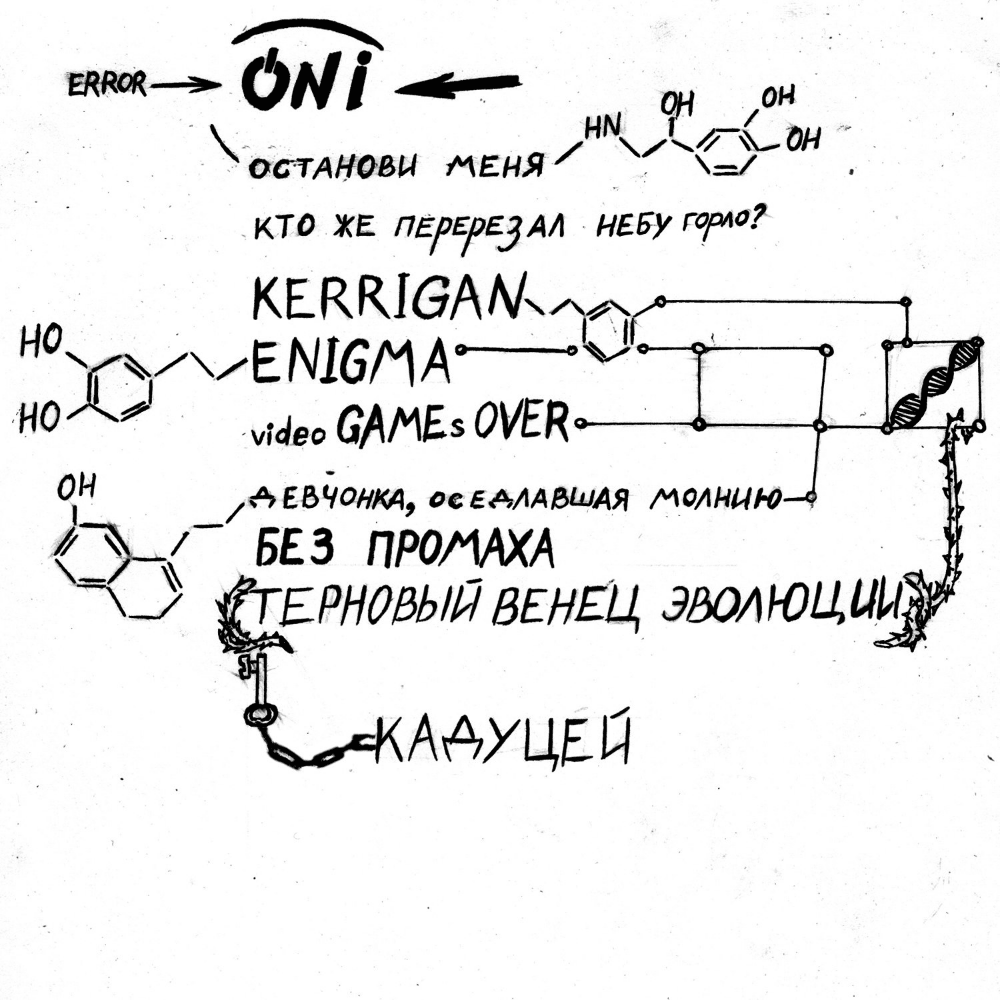 ERROR ONi
OH
OH
HN
OH
ОСТАНОВИ МЕНЯ
КТО ЖЕ ПЕРЕРЕЗАЛ НЕБУ ГОРЛО?
KERRIGAN
HO
ENIGMA
HO
video GAMEs OVER
OH
ДЕВЧОНКА, ОСЕДЛАВШАЯ МОЛНИЮ
БЕЗ ПРОМАХА
ТЕРНОВЫЙ ВЕНЕЦ ЭВОЛЮЦИИ
КАДУЦЕЙ